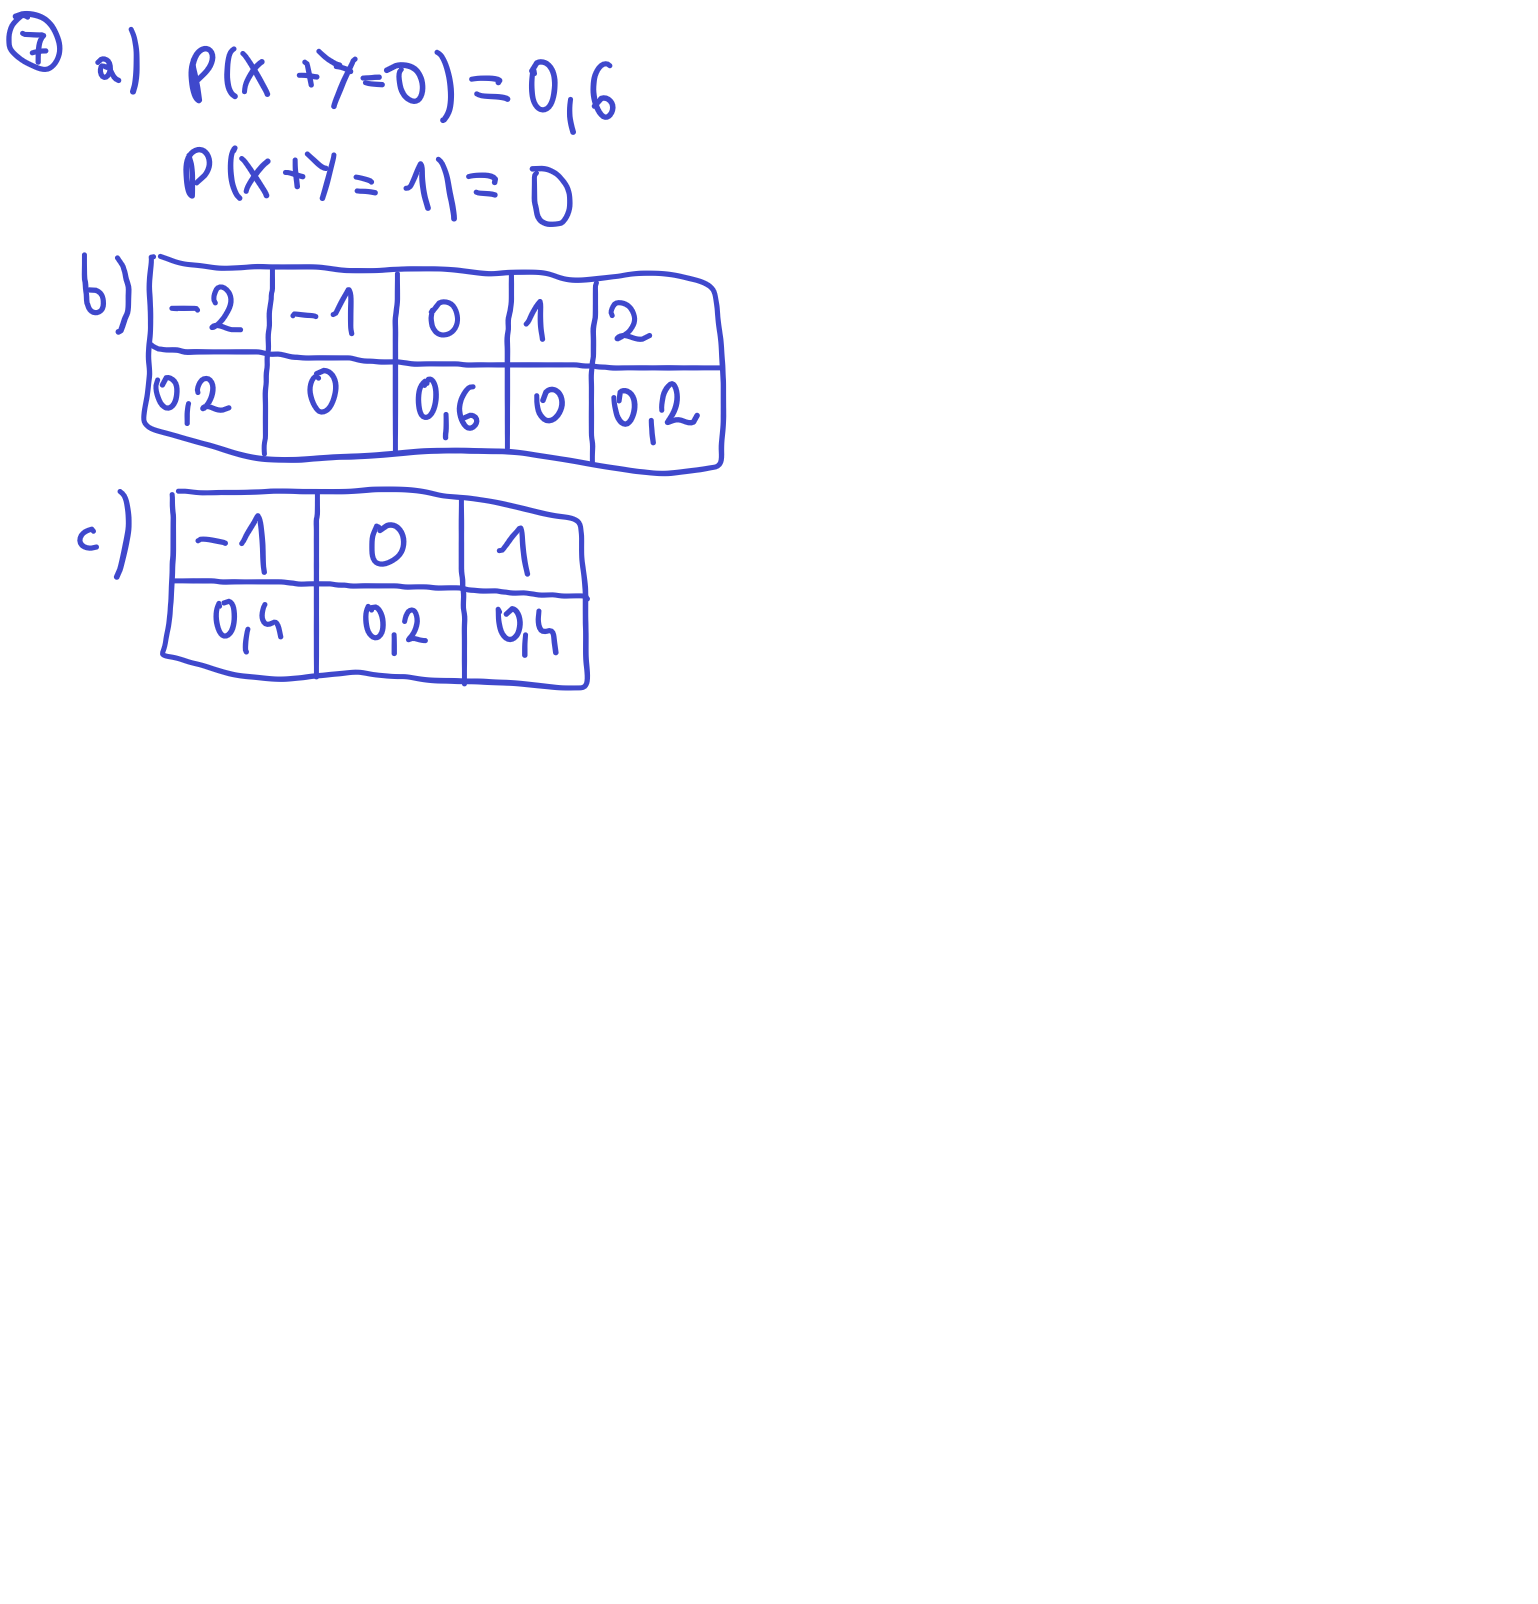 7 a) P(X+Y=0)=0,6
P(X+Y=1)=0
b) -2 -1 0 1 2
0,2 0 0,6 0 0,2
c) -1 0 1
0,4 0,2 0,4